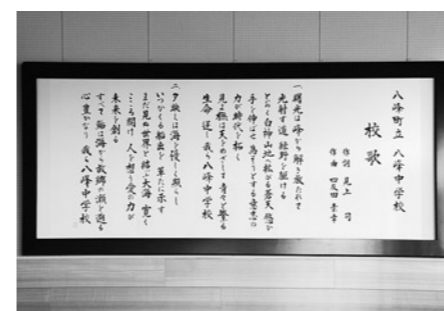 八峰町立 八峰中学校
校歌
作詞 見上 司
作曲 四反田 素幸
一、曙光は峰から解き放たれて
光射す道 緑野を駆ける
とおく白神山地へ拡がる蒼天
手を伸ばせ 為そうとする意志の
力が時代を拓く
見よ 樹は天をめざして
生命 逞し 我ら八峰中学校
二、夕映は海を優しく照らし
いつかくる船出を に示す
まだ見ぬ世界と結ぶ大海 寛く
こころ開け 人を想う愛の力が
未来を創る
すべて は海から故郷の瀬を遡る
心豊かなり 我ら八峰中学校